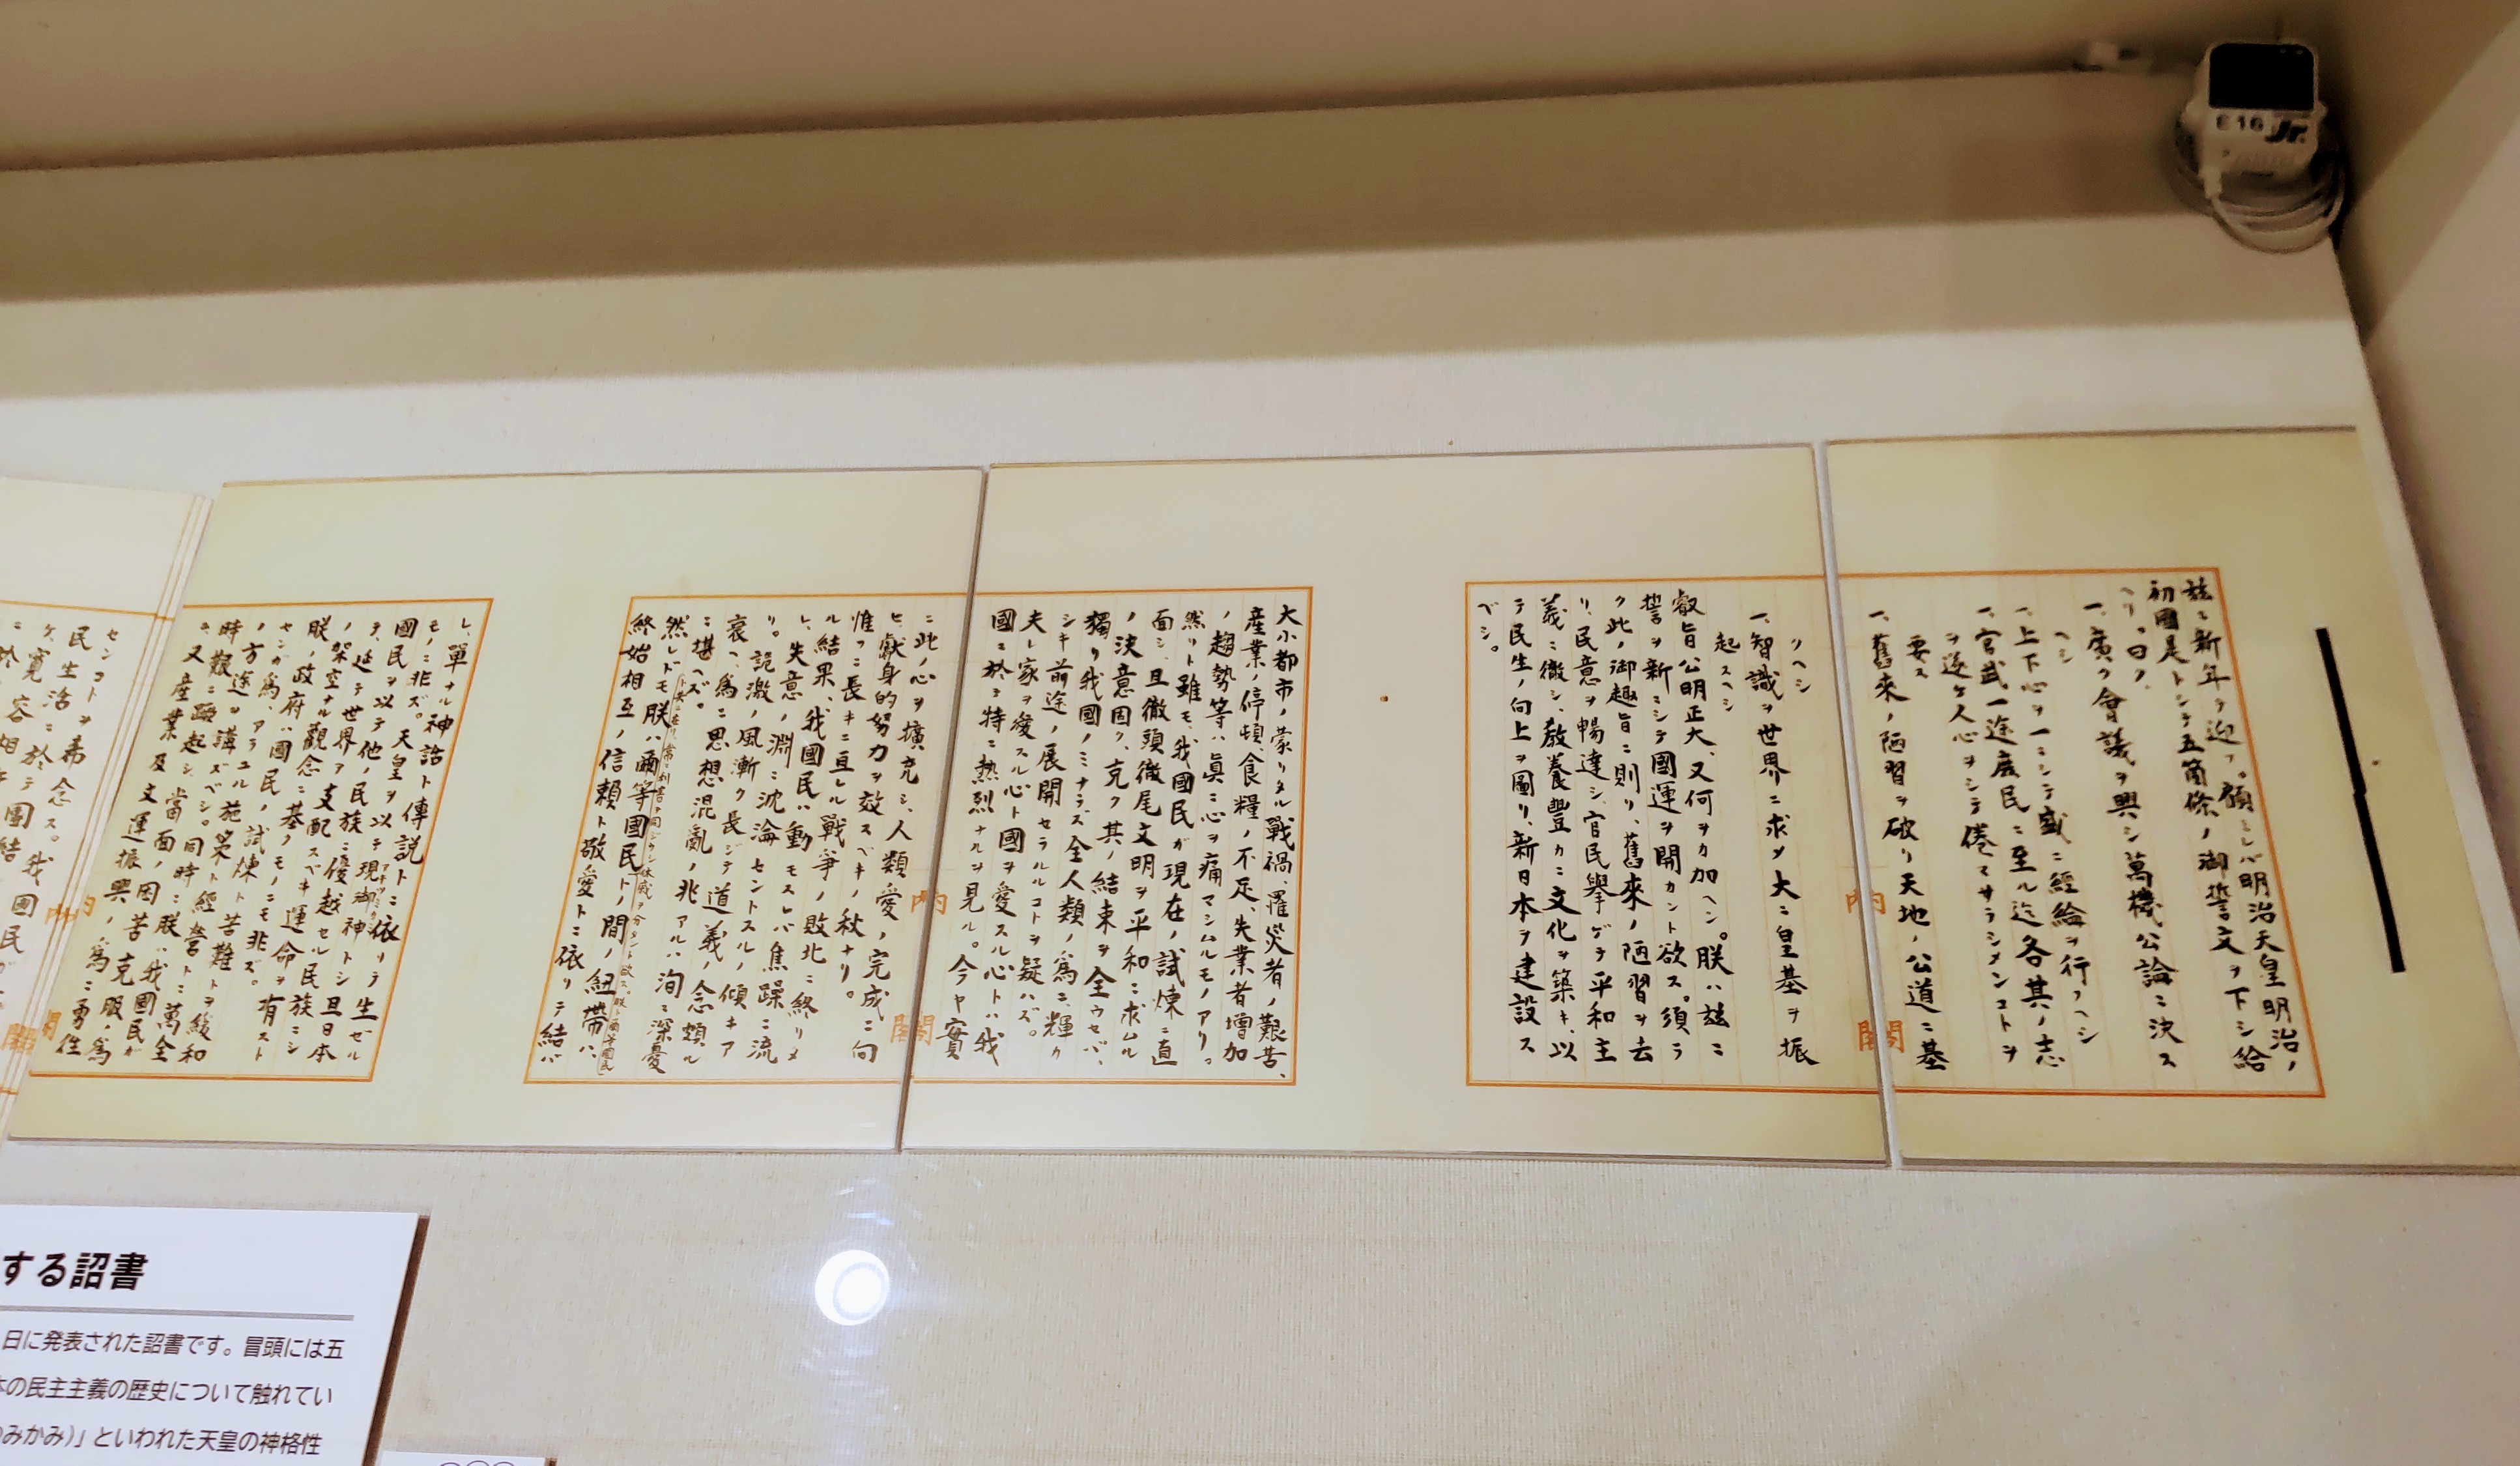 玆ニ新年ヲ迎フ。顧ミレバ明治天皇明治ノ
初國是トシテ五箇條ノ御誓文ヲ下シ給
ヘリ。曰ク、
一、廣ク會議ヲ興シ萬機公論ニ決ス
ヘシ
一、上下心ヲ一ニシテ盛ニ經綸ヲ行フヘシ
一、官武一途庶民ニ至ル迄各其ノ志
ヲ遂ケ人心ヲシテ倦マサラシメンコトヲ
要ス
一、舊來ノ陋習ヲ破リ天地ノ公道ニ基
クヘシ
一、智識ヲ世界ニ求メ大ニ皇基ヲ振
起スヘシ
叡旨公明正大、又何ヲカ加ヘン。朕ハ玆ニ
誓ヲ新ニシテ國運ヲ開カント欲ス。須ラ
ク此ノ御趣旨ニ則リ、舊來ノ陋習ヲ去
リ、民意ヲ暢達シ、官民擧ゲテ平和主
義ニ徹シ、敎養豐カニ文化ヲ築キ、以
テ民生ノ向上ヲ圖リ、新日本ヲ建設ス
ベシ。
大小都市ノ蒙リタル戰禍、罹災者ノ艱苦、
産業ノ停頓、食糧ノ不足、失業者増加
ノ趨勢等ハ眞ニ心ヲ痛マシムルモノアリ。
然リト雖モ、我國民ガ現在ノ試煉ニ直
面シ、且徹頭徹尾文明ヲ平和ニ求ムル
ノ決意固ク、克ク其ノ結束ヲ全ウセバ、
獨リ我國ノミナラズ全人類ノ爲ニ、輝カ
シキ前途ノ展開セラルルコトヲ疑ハズ。
夫レ家ヲ愛スル心ト國ヲ愛スル心トハ我
國ニ於テ特ニ熱烈ナルヲ見ル。今ヤ實
ニ此ノ心ヲ擴充シ、人類愛ノ完成ニ向
ヒ、獻身的努力ヲ效スベキノ秋ナリ。
惟フニ長キニ亘レル戰爭ノ敗北ニ終リタ
ル結果、我國民ハ動モスレバ焦躁ニ流
レ、失意ノ淵ニ沈淪セントスルノ傾キア
リ。詭激ノ風漸ク長ジテ道義ノ念頗ル
衰ヘ、爲ニ思想混亂ノ兆アルハ洵ニ深憂
ニ堪ヘズ。
然レドモ朕ハ爾等國民ト共ニ在リ、常ニ利害ヲ同ジウシ休戚ヲ分タント欲ス。朕ト爾等國民トノ間ノ紐帶ハ、
終始相互ノ信頼ト敬愛トニ依リテ結バ
レ、單ナル神話ト傳説トニ依リテ生ゼル
モノニ非ズ。天皇ヲ以テ現御神トシ且日本
國民ヲ以テ他ノ民族ニ優越セル民族ニシ
テ、延テ世界ヲ支配スベキ運命ヲ有スト
ノ架空ナル觀念ニ基クモノニモ非ズ。
朕ノ政府ハ國民ノ試煉ト苦難トヲ緩和
センガ爲、アラユル施策ト經營トニ萬全
ノ方途ヲ講ズベシ。同時ニ朕ハ我國民ガ
時艱ニ蹶起シ、當面ノ困苦克服ノ爲
ニ、又産業及文運振興ノ爲ニ勇往
センコトヲ希念ス。我國民ガ
民生活ニ於テ團結
内閣
内閣
内閣
する詔書
日に発表された詔書です。冒頭には五
の民主主義の歴史について触れてい
みかみ)」といわれた天皇の神格性
E16 Jr.